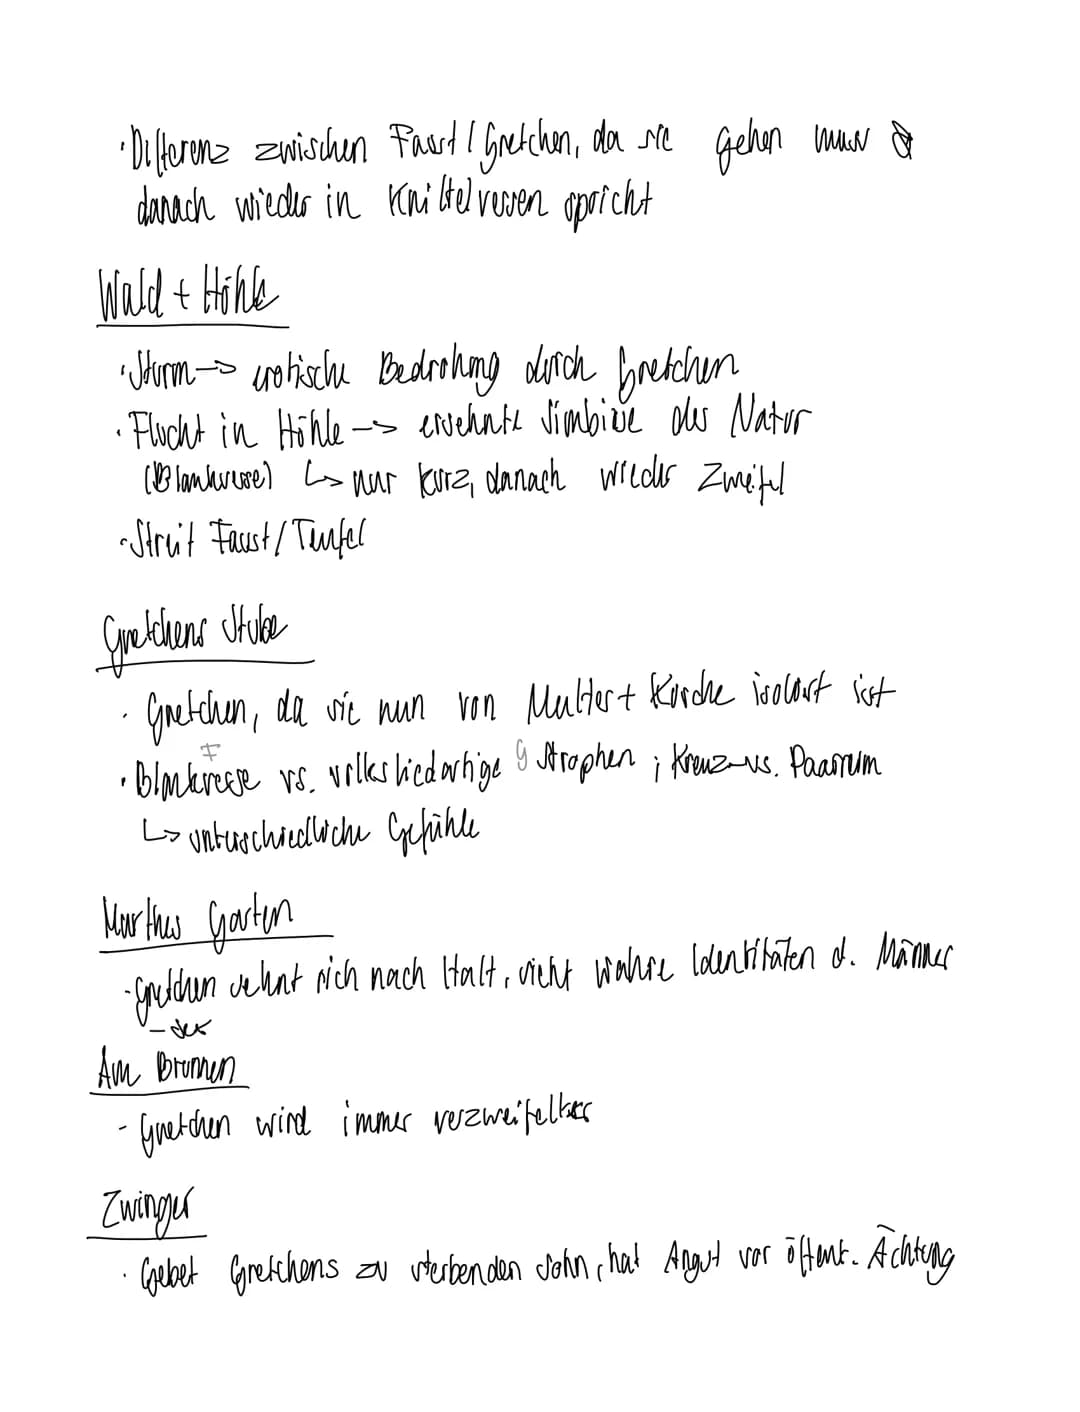 · Differenz zwischen Faust / Gretchen, da sie gehen muss &
danach wieder in Knittelversen spricht
Wald + Höhle
· Sturm -> erotische Bedrohung durch Gretchen
· Flucht in Höhle -> ersehnte Simbiose der Natur
(Blankverse) ↳ nur kurz, danach wieder Zweifel
· Streit Faust / Teufel
Gretchens Stube
· Gretchen, da sie nun von Mutter + Kirche isoliert ist
F
· Blankverse vs. volksliedartige G Strophen ; Kreuz- vs. Paarreim
↳ unterschiedliche Gefühle
Marthes Garten
- Gretchen sehnt sich nach Halt, sieht wahre Identitäten d. Männer
Am Brunnen
- Gretchen wird immer verzweifelter
Zwinger
· Gebet Gretchens zu sterbenden Sohn, hat Angst vor öffent. Ächtung